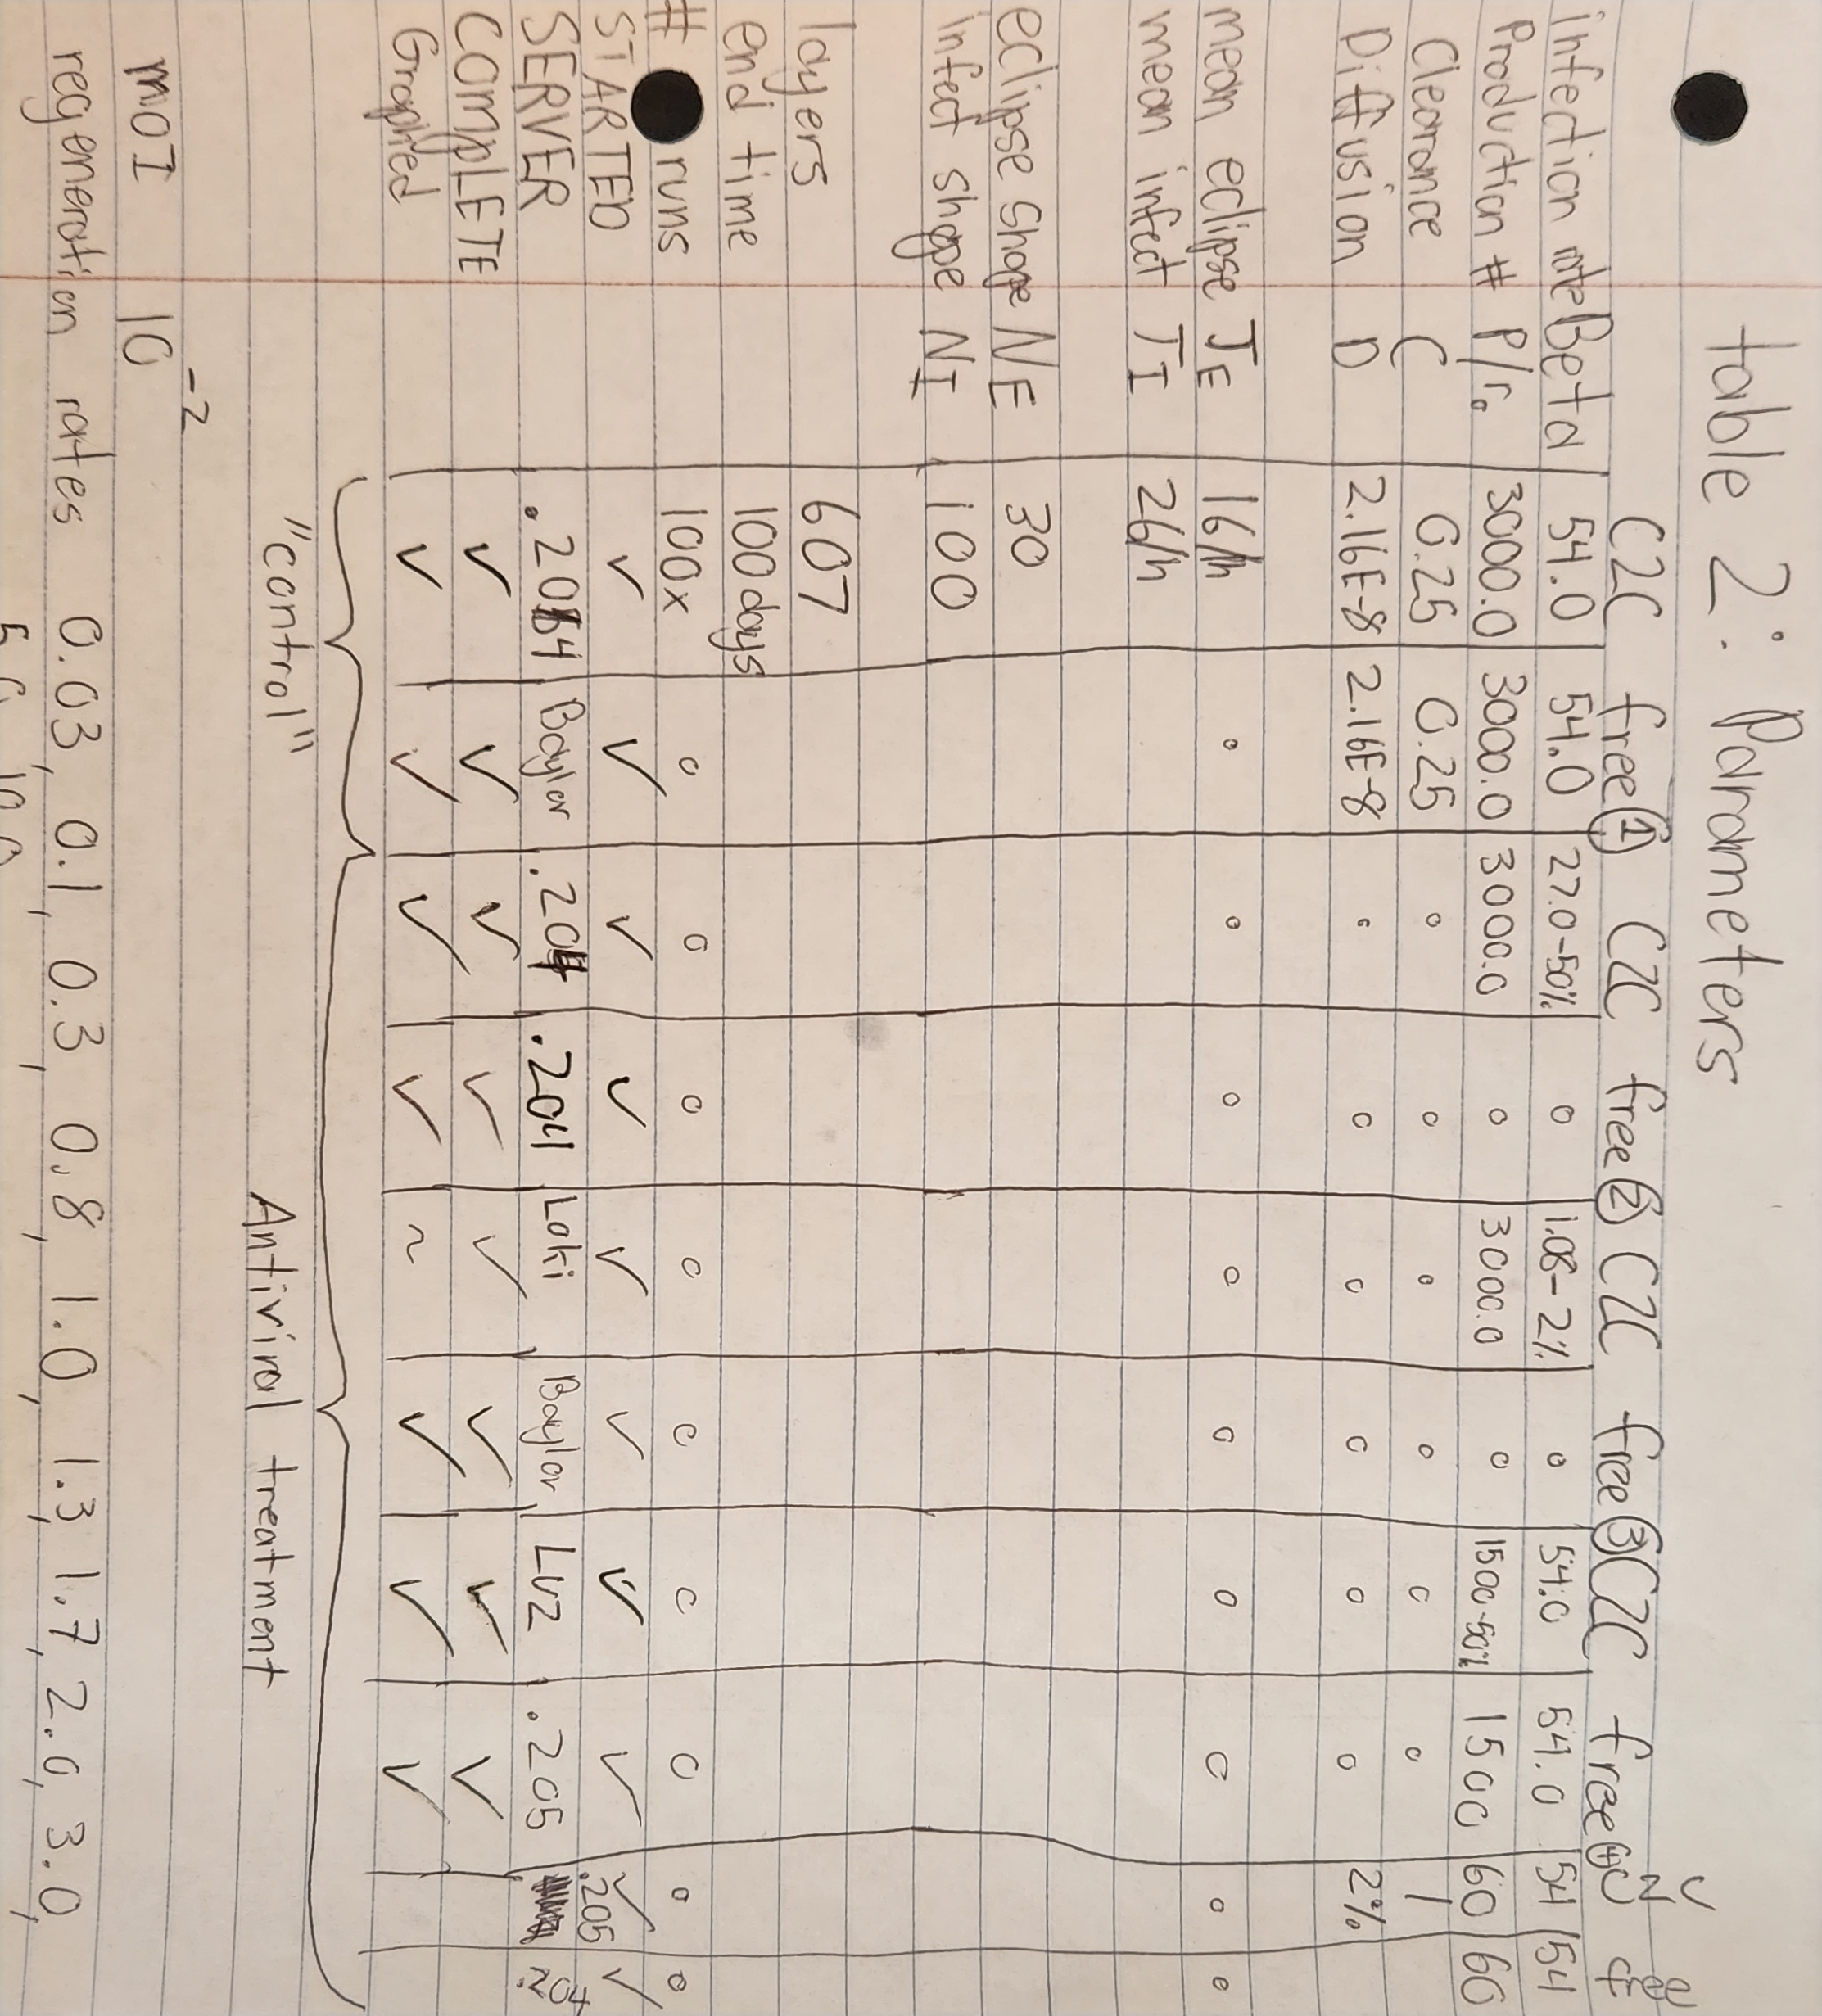 table 2: Parameters
C2C free ① C2C free ② C2C free ③ C2C free ④ C2C free
infection rate Beta 54.0 54.0 27.0-50% o 1.08-2% o 54.0 54.0 54 54
Production # P/r₀ 3000.0 3000.0 3000.0 o 3000.0 o 1500-50% 1500 60 60
Clearance C 0.25 0.25 o o o o o o /
Diffusion D 2.16E-8 2.16E-8 o o o o o o 2%
mean eclipse TE 16/h o o o o o o o o o
mean infect TI 26/h
eclipse shape NE 30
infect shape NI 100
layers 607
end time 100 days
# runs 100x o o o o o o o o o
STARTED ✓ ✓ ✓ ✓ ✓ ✓ ✓ ✓ ✓ ✓
SERVER .204 Baylor .204 .204 Loki Baylor Luz .205 .205 .204
COMPLETE ✓ ✓ ✓ ✓ ✓ ✓ ✓ ✓
Graphed ✓ ✓ ✓ ✓ ~ ✓ ✓ ✓
"control" Antiviral treatment
MOI 10⁻²
regeneration rates 0.03, 0.1, 0.3, 0.8, 1.0, 1.3, 1.7, 2.0, 3.0,